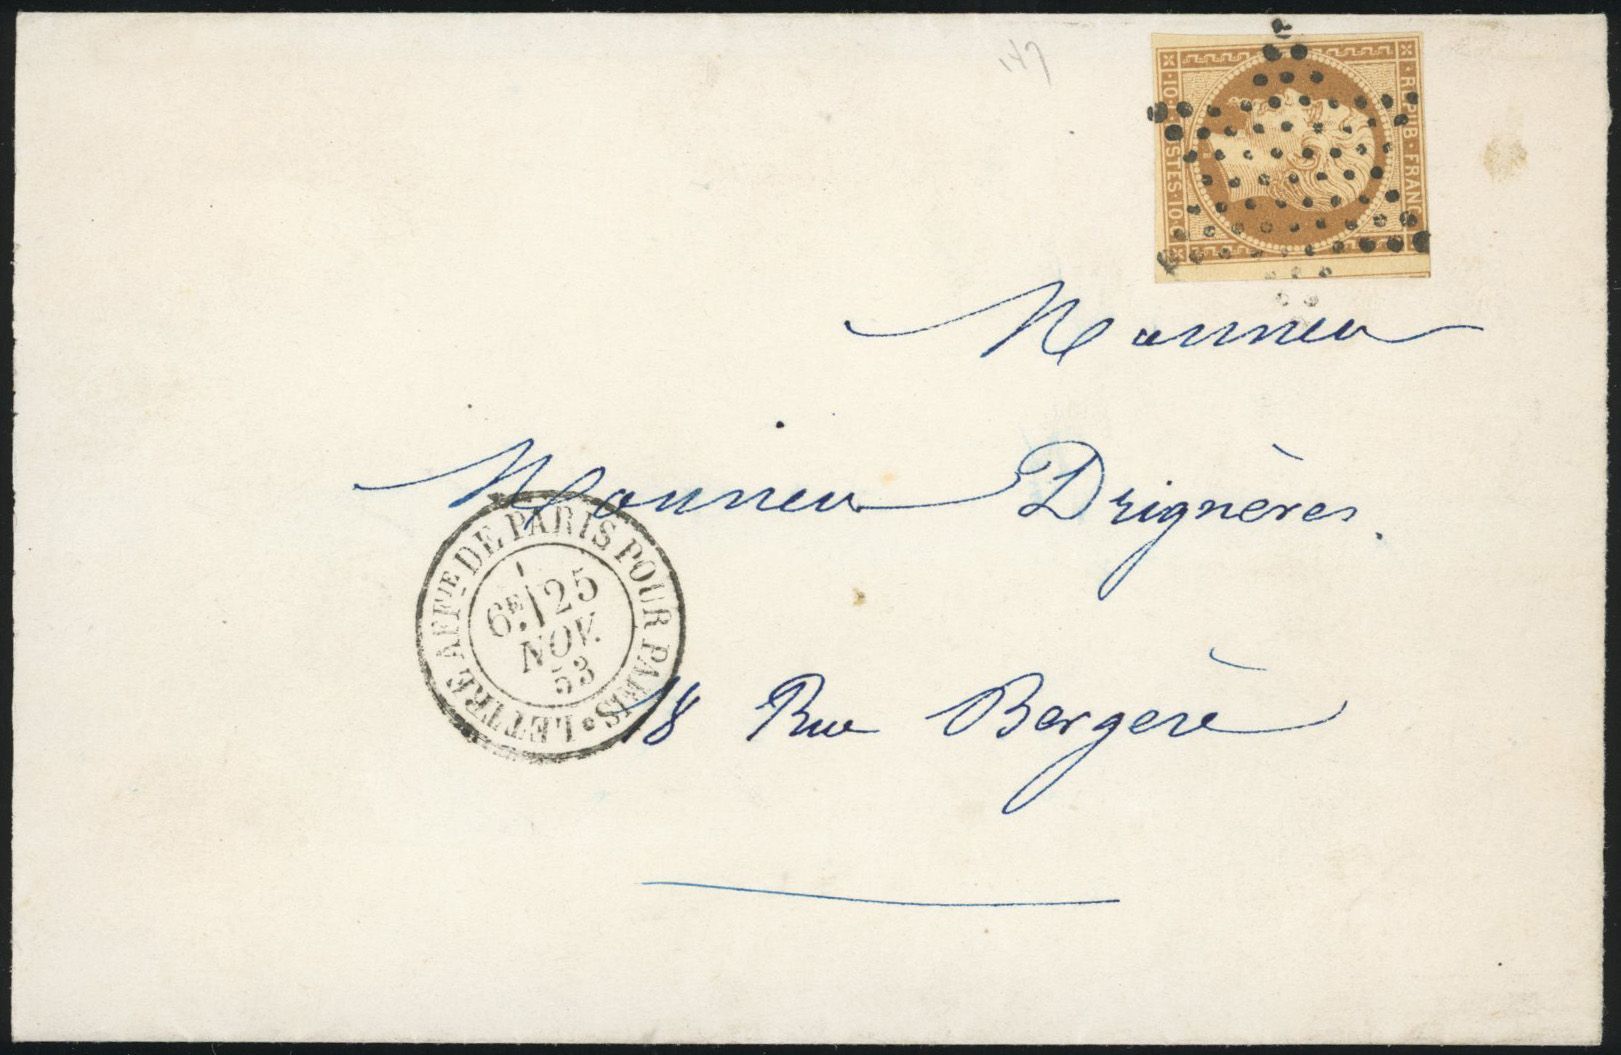 147
REPUB·FRANC
10·C·POSTES·10·C
Monsieur
Monsieur Drignères.
18 Rue Bergère
LETTRE AFFie DE PARIS POUR PARIS
6E 25
NOV.
53